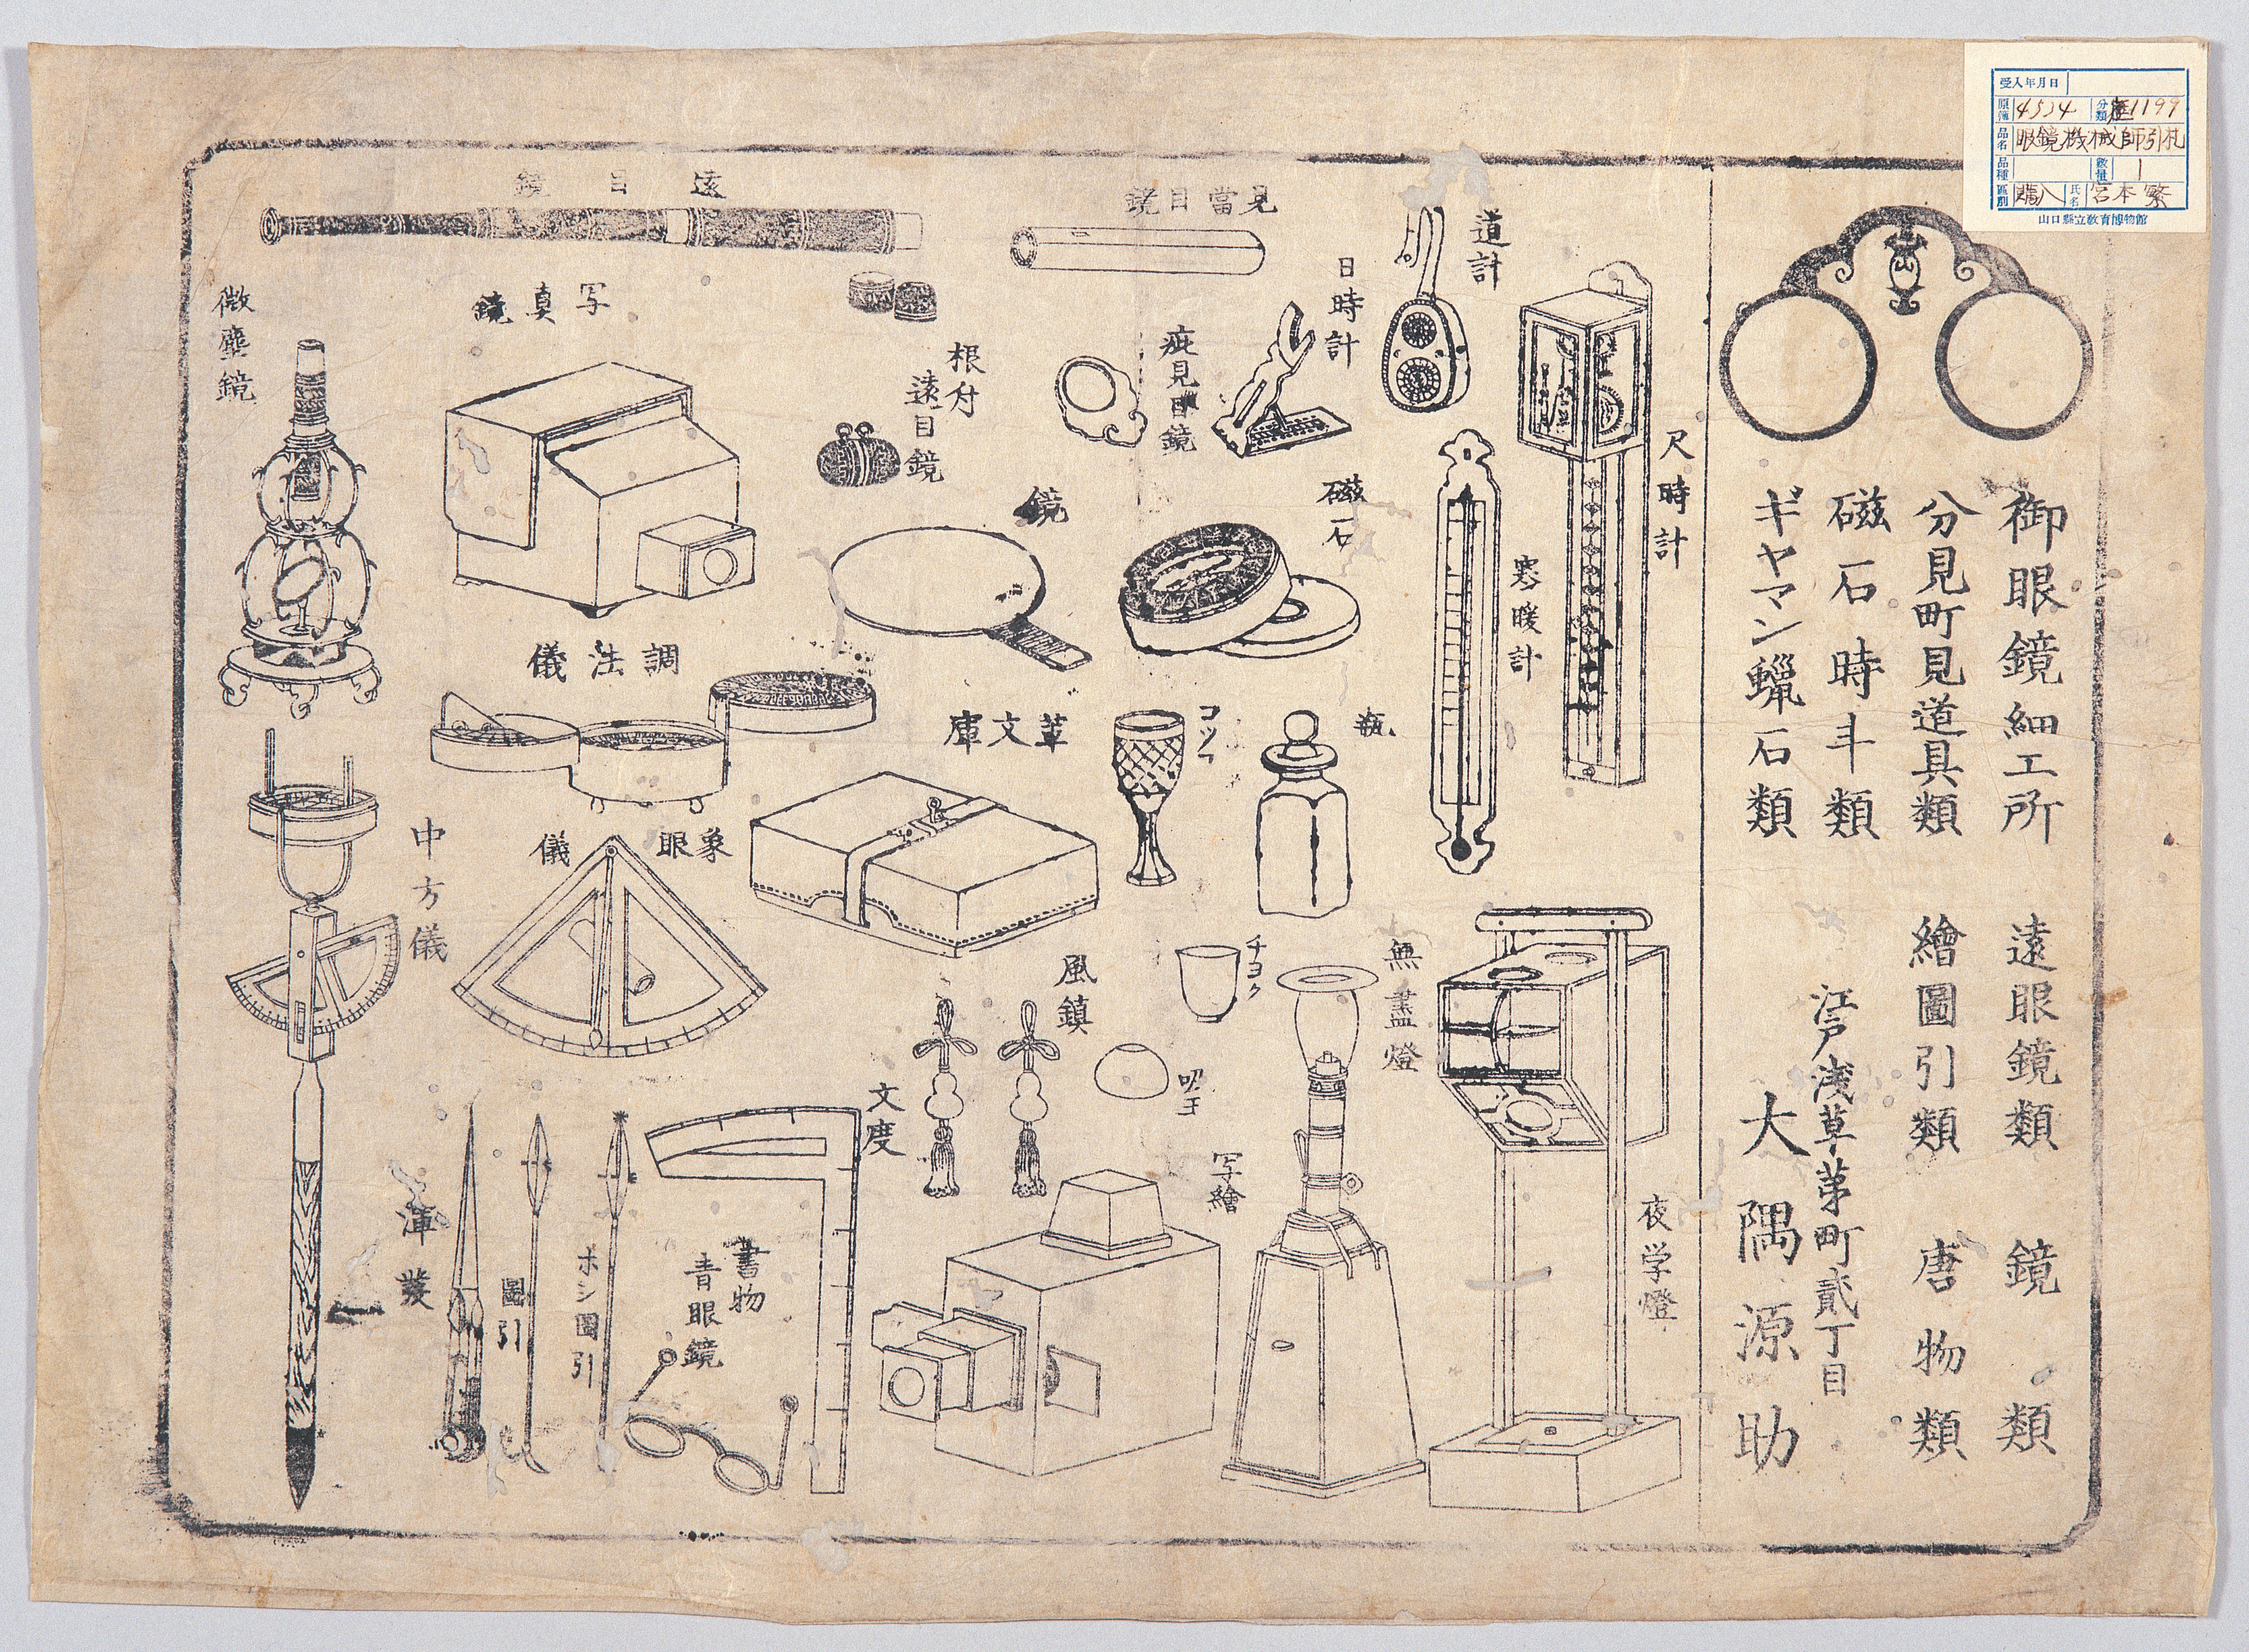 受入年月日
原簿 4534 分類 歴1199
品名 眼鏡機械師引札
品種 数量 1
区別 購入 氏名 宮本繁
山口縣立教育博物館
御眼鏡細工所 遠眼鏡類 鏡類
分見町見道具類 繪圖引類 唐物類
磁石時斗類
ギヤマン蠟石類
江戸浅草茅町貳丁目
大隅源助
道計
尺時計
日時計
寒暖計
見當目鏡
疵見目鏡
磁石
鏡
遠目鏡
根付
遠目鏡
写真鏡
微塵鏡
調法儀
中方儀
象眼儀
革文庫
コツフ
瓶
チヨク
無盡燈
夜学燈
風鎮
吸玉
写繪
文度
書物
青眼鏡
ホシ圖引
圖引
渾發